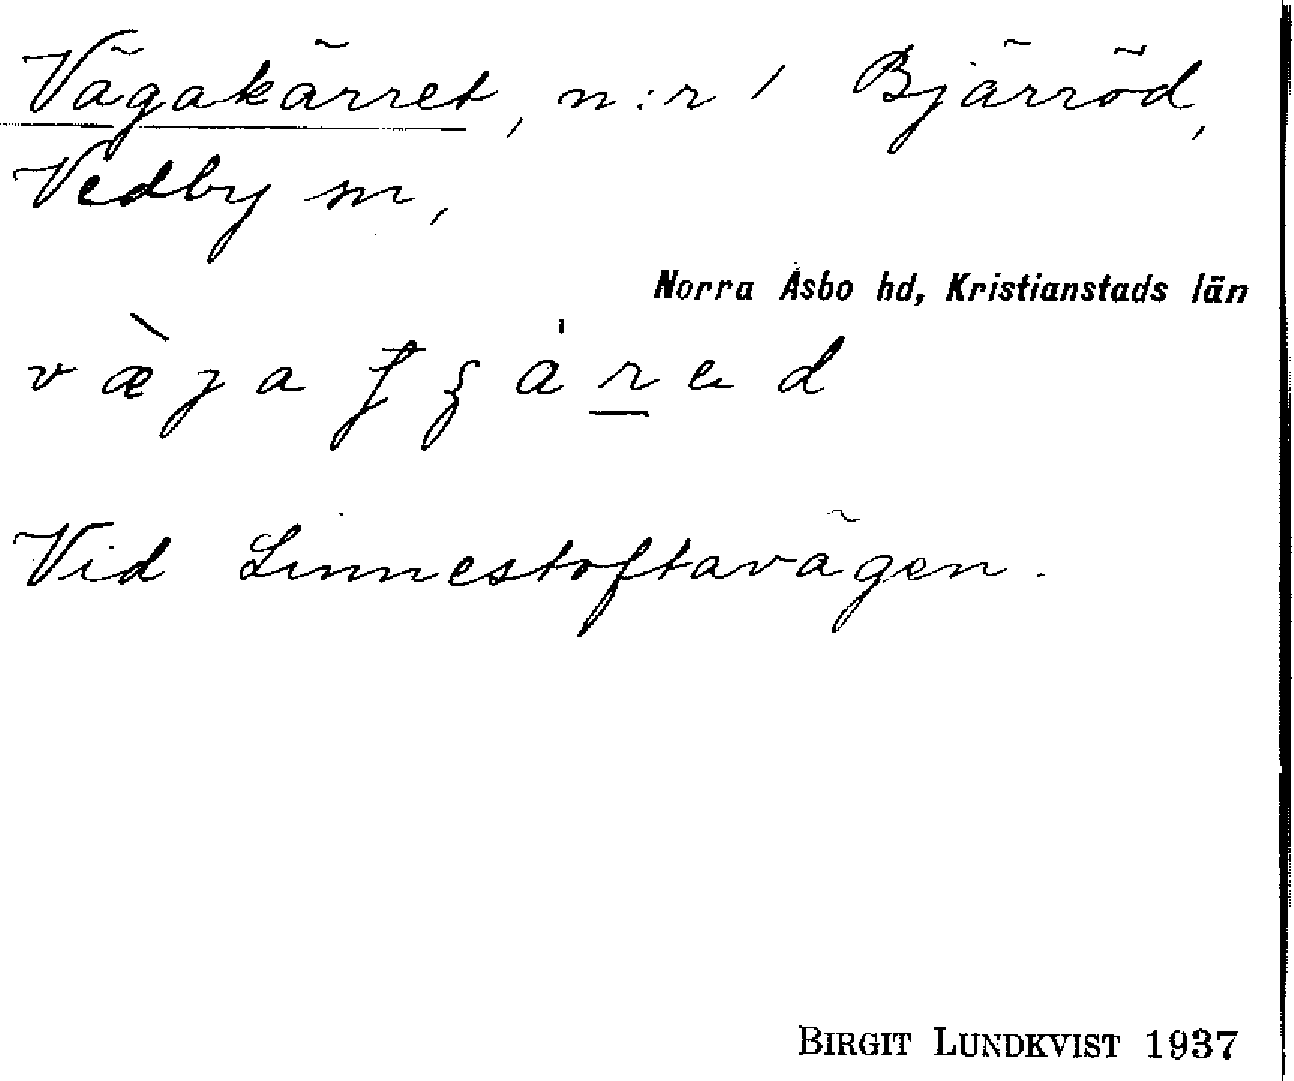 Vägakärret, n:r 1 Bjärröd,
Vedby sn,
Norra Åsbo hd, Kristianstads län
Vid Linnestoftavägen.
BIRGIT LUNDKVIST 1937